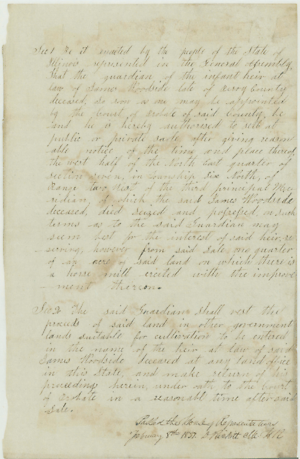 Sec 1 Be it enacted by the people of the State of
Illinois represented in the General Assembly
That the guardian of the infant heir at
law of James Woodside late of County
deceased, as now is or may be appointed
by the Court of Probate of said County, be
and he is hereby authorised to sell at
public or private sale after giving reason
able notice of the time and place thereof
the West half of the North East quarter of
section seven, in Township Six North, of
Range two West of the third principal Me
ridian, of which, the said James Woodside
deceased, died seized and possessed, on such
terms as to the said Guardian may
seem best for the interest of said heir, re
serving however from said sale one quarter
of an acre of said land on which there is
a horse mill erected with the improve
ment thereon.
Sec 2 The said Guardian shall vest the
proceeds of said land in other government
lands suitable for cultivation to be entered
in the name of the heir at law of said
James Woodside deceased at any land office
in this State, and make return of his
proceedings herein, under oath to the Court
of Probate in a reasonable time after said
Sale.
House of Representatives
8th